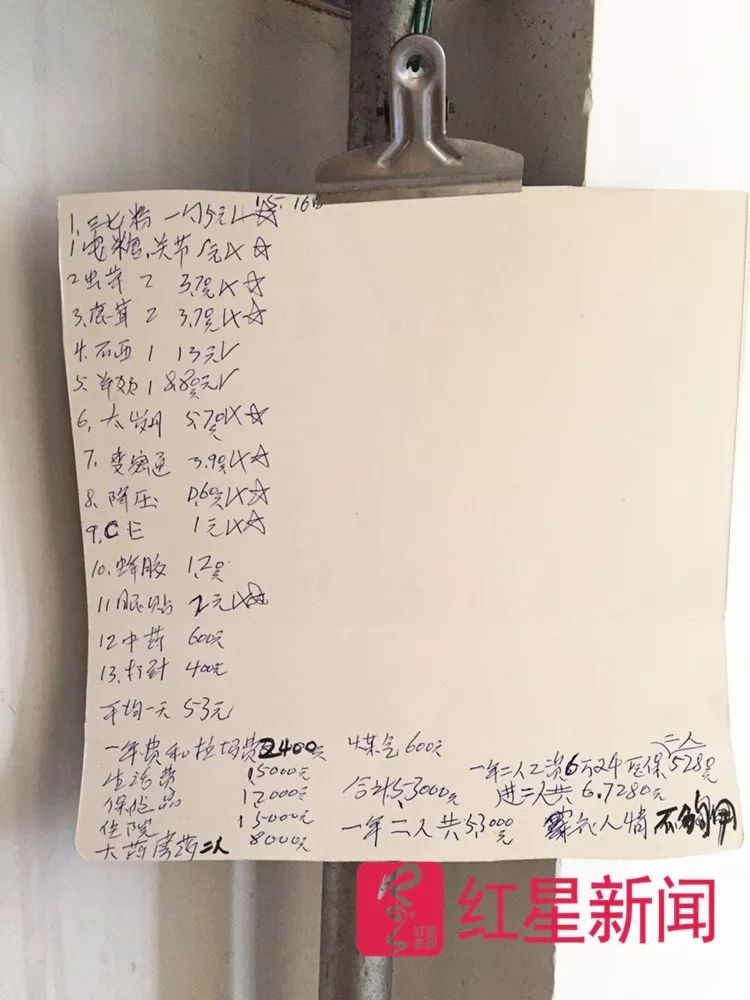 15. 16日
1. 三七粉 一勺 5元
1 氨糖.关节 1元
2 出芽 2 3.70元
3. 鹿茸 2 3.70元
4. 石西 1 13元
5. 1 8.80元
6. 5.70元
7. 变密通 3.90元
8. 降压 0.60元
9. CE 1元
10. 蜂胶 1.20元
11 眼贴 2元
12 中药 600元
13. 打针 400元
平均一天 53元
一年费和垃圾费2400元 煤气600元
生活费 15000元 一年二人工资6万2千 医保5280元 二人
保险品 12000元 合计5,3000元 进二人共 6.7280元
住院 15000元 一年二人共5,3000元 人情不够用
大药房药二人 8000元
红星新闻